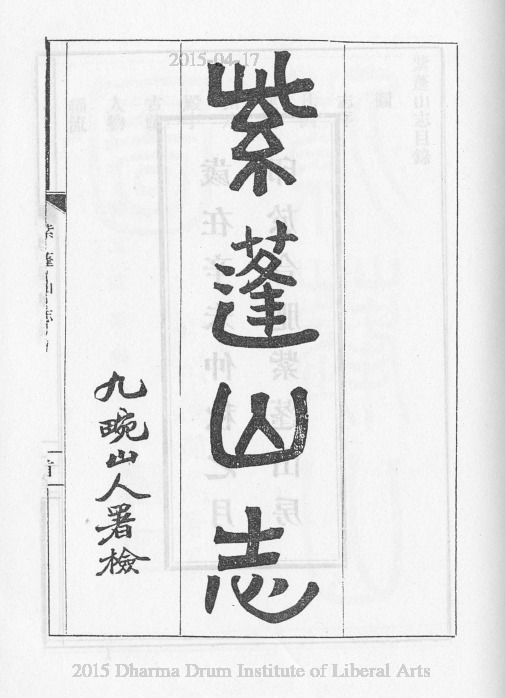 2015-04-17
紫蓬山志
九畹山人署檢
紫蓬山志
首
2015 Dharma Drum Institute of Liberal Arts